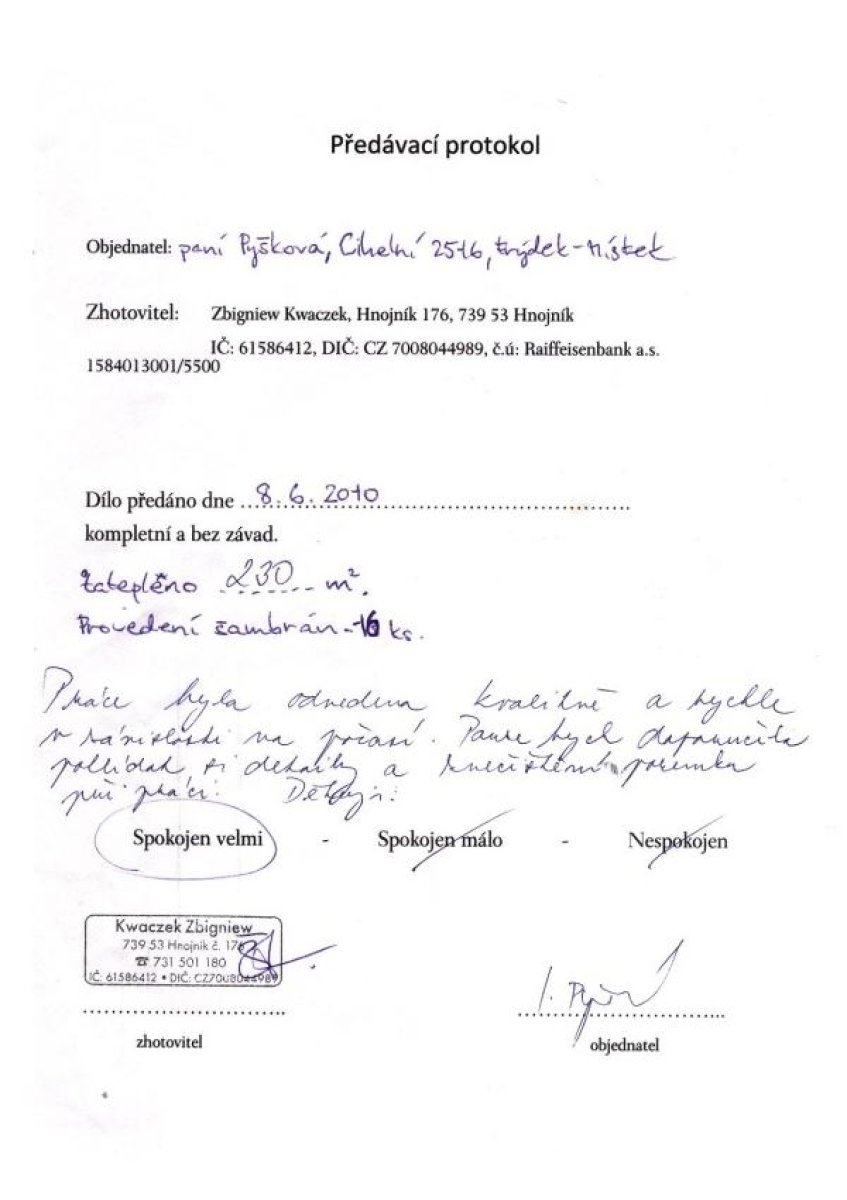 Předávací protokol
Objednatel: paní Pyšková, Cihelní 2516, Frýdek-Místek
Zhotovitel: Zbigniew Kwaczek, Hnojník 176, 739 53 Hnojník
IČ: 61586412, DIČ: CZ 7008044989, č.ú: Raiffeisenbank a.s.
1584013001/5500
Dílo předáno dne ...8. 6. 2010...
kompletní a bez závad.
Zatepleno 230 m².
Provedení zambrán - 16 ks.
Práce byla odvedena kvalitně a rychle
v závislosti na počasí. Pouze bych doporučila
pohlídat si detaily a znečištění pozemku
při práci. Děkuji.
Spokojen velmi - Spokojen málo - Nespokojen
Kwaczek Zbigniew
739 53 Hnojník č. 176
☎ 731 501 180
IČ: 61586412 • DIČ: CZ7008044989
zhotovitel objednatel